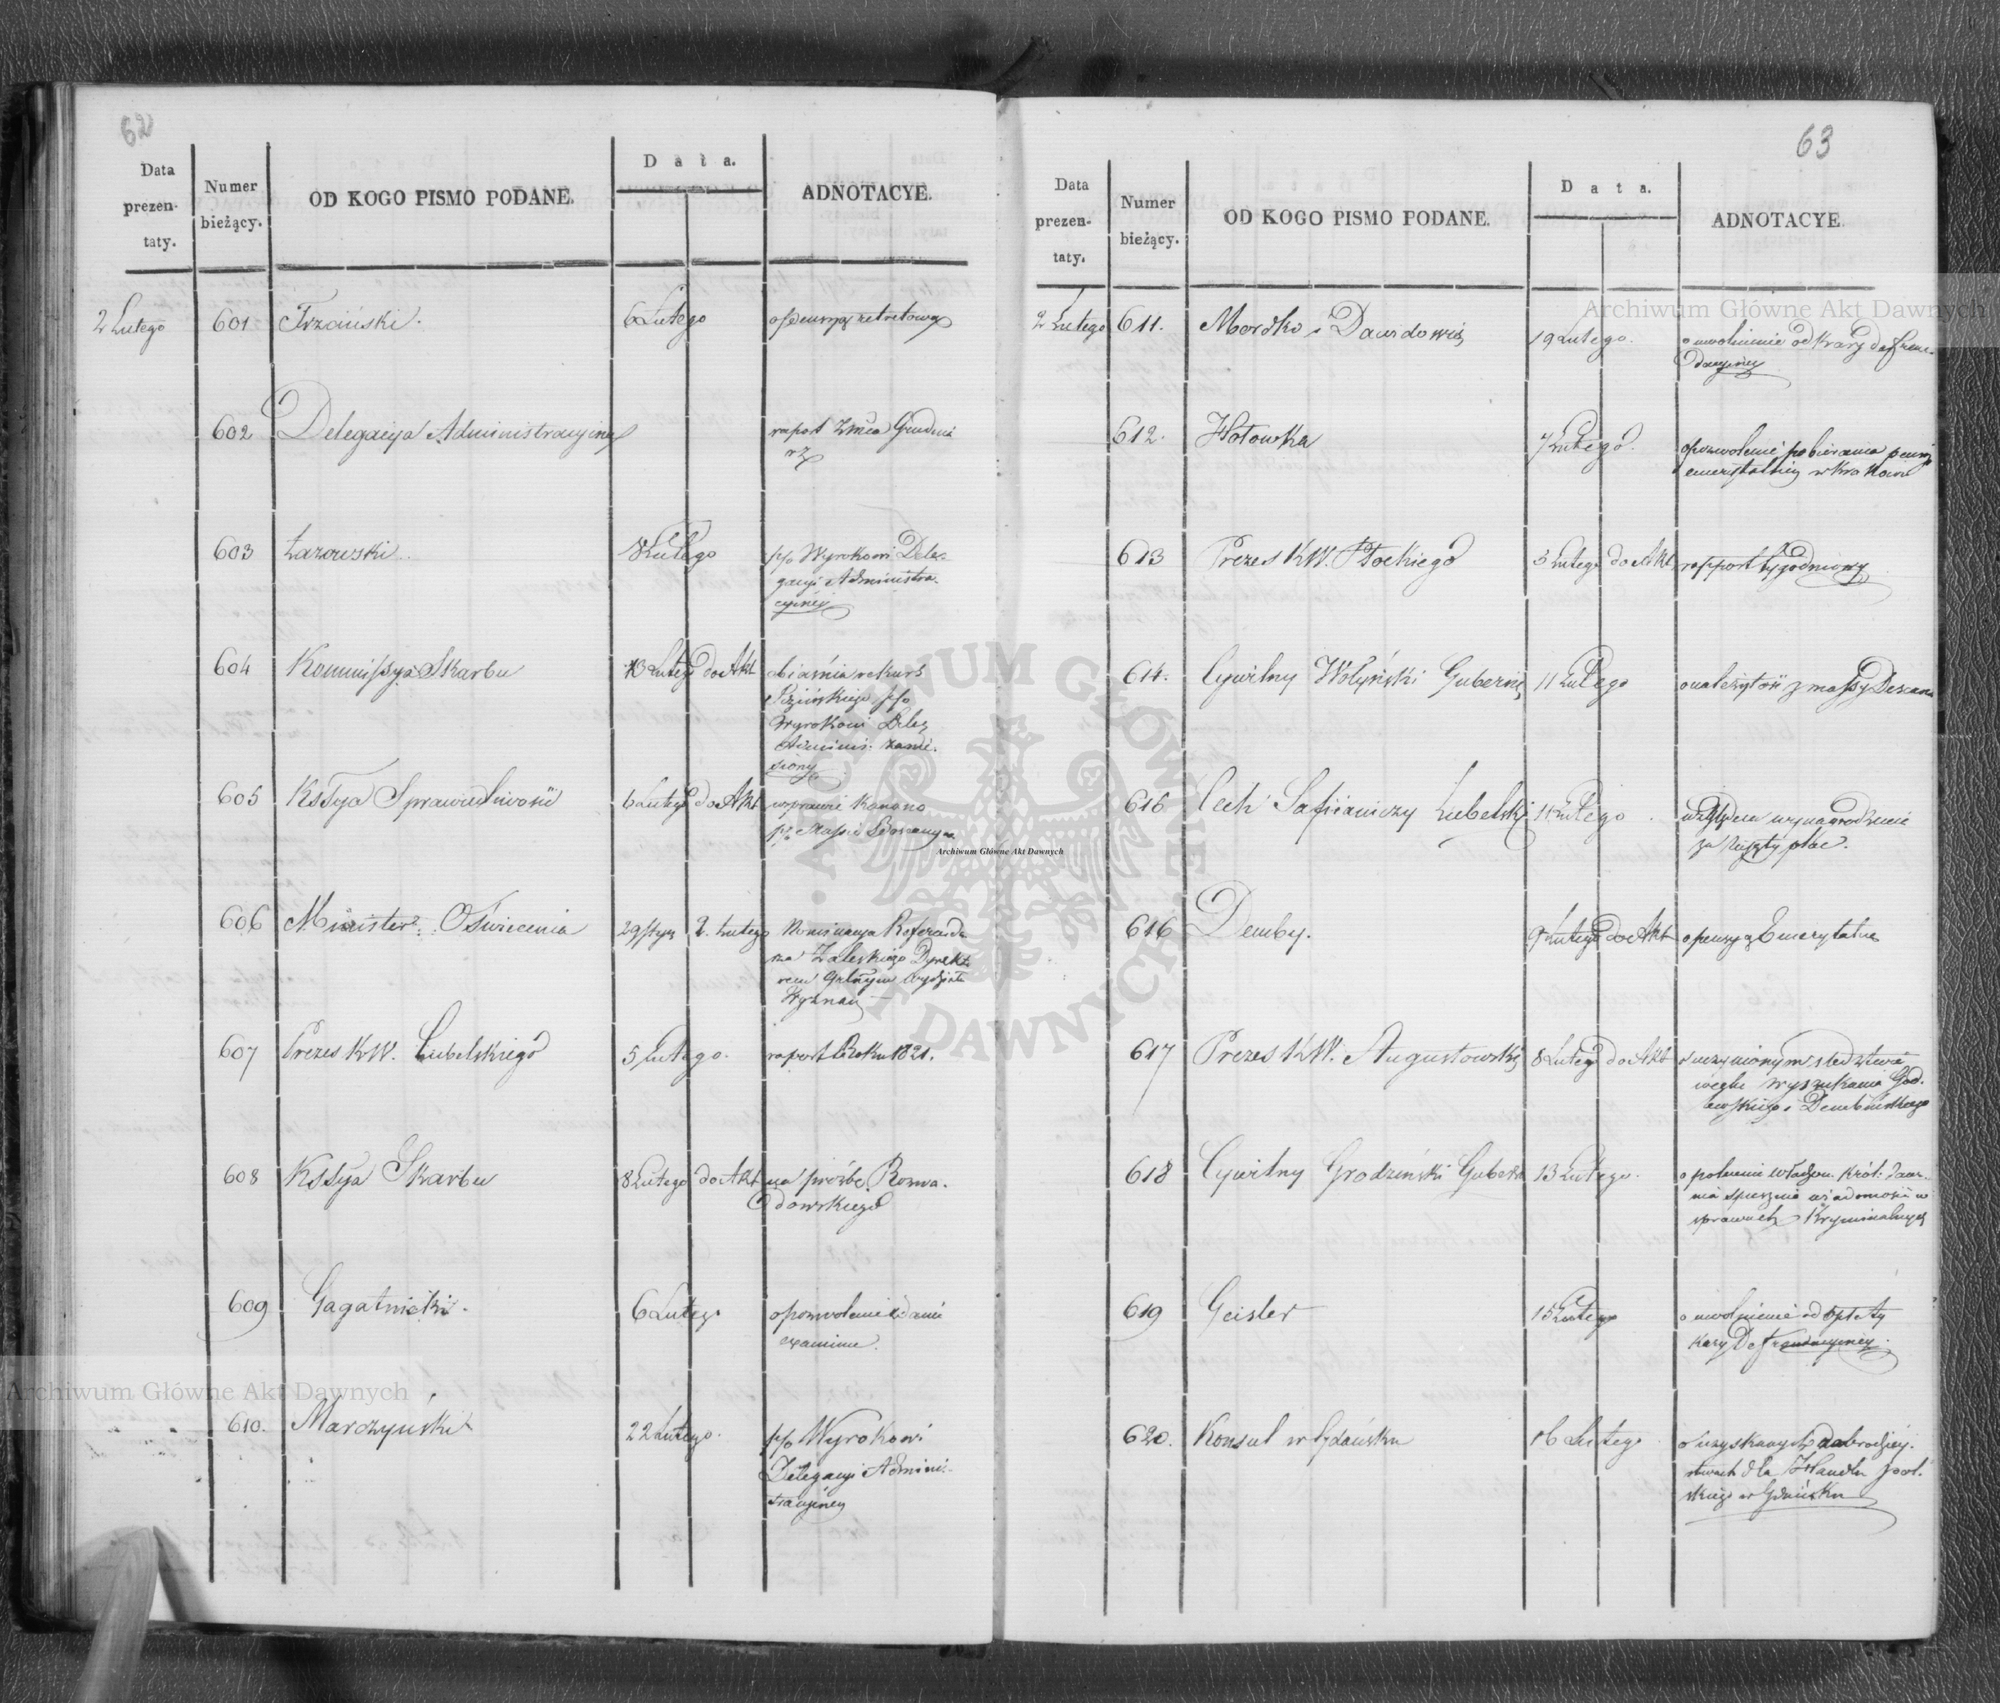 62
Data
prezen-
taty.
Numer
bieżący.
OD KOGO PISMO PODANE.
Data.
ADNOTACYE.
2 Lutego 601 Trzciński. 6 Lutego o pensyą retretową
602 Delegacya Administracyina raport z mca Grudnia
rz
603 Łazowski 8 Lutego p/o Wyrokowi Dele-
gacyi Administra-
cyinéy
604 Kommissya Skarbu 13 Lutego do Akt obiaśnia rekurs
p/o
Wyrokowi Deleg
Adminis: zanie-
siony
605 Kssya Sprawiedliwości 6 Lutego do Akt w sprawie Konona
606 Minister Oświecenia 29 Stycz 2. Lutego Nominacya Referenda-
rza Zaleskiego Dyrekt
rem Gelnym Wydziału
Wyznań
607 Prezes KW. Lubelskiego 5 Lutego. raport Roku 1821.
608 Kssya Skarbu 8 Lutego do Akt na prożbę Rozwa-
dowskiego
609 Gagatnicki. 6 Lutego o pozwolenie zdania
examinu.
610. Marczyński 22 Lutego. p/o Wyrokowi
Delegacyi Adminis-
tracyinéy
63
Data
prezen-
taty.
Numer
bieżący.
OD KOGO PISMO PODANE.
Data.
ADNOTACYE.
2 Lutego 611. Mordko i Dawidowicz 19 Lutego. o uwolnienie od kary defrau-
dacyinéy
612. Hołowka 7 Lutego. o pozwolenie pobierania pensyi
emerytalnéy w Krakowie
613 Prezes KW. Płockiego 5 Lutego do Akt rapport tygodniowy
614. Cywilny Wołyński Guberna 11 Lutego o należytość z massy
616 Cech Safianiczy Lubelski 11 Lutego względem wynagrodzenie
za place.
616 Demby. 9 Lutego do Akt o pensyą Emerytalną
617 Prezes KW. Augustowski 8 Lutego do Akt o uczynionym śledztwie
wyszukania God-
lewskiego i Dembińskiego
618 Cywilny Grodzieński Gubern 13 Lutego. o polecenie Władzom Król:
w
sprawach Kryminalnych
619 Geisler 15 Lutego o uwolnienie od opłaty
kary Defraudacyinéy.
620. Konsul w Gdańsku 16 Lutego o uzyskanych dobrodziey-
stwach dla Handlu pol-
skiego w Gdańsku
Archiwum Główne Akt Dawnych
Archiwum Główne Akt Dawnych
Archiwum Główne Akt Dawnych
ARCHIWUM GŁÓWNE AKT DAWNYCH